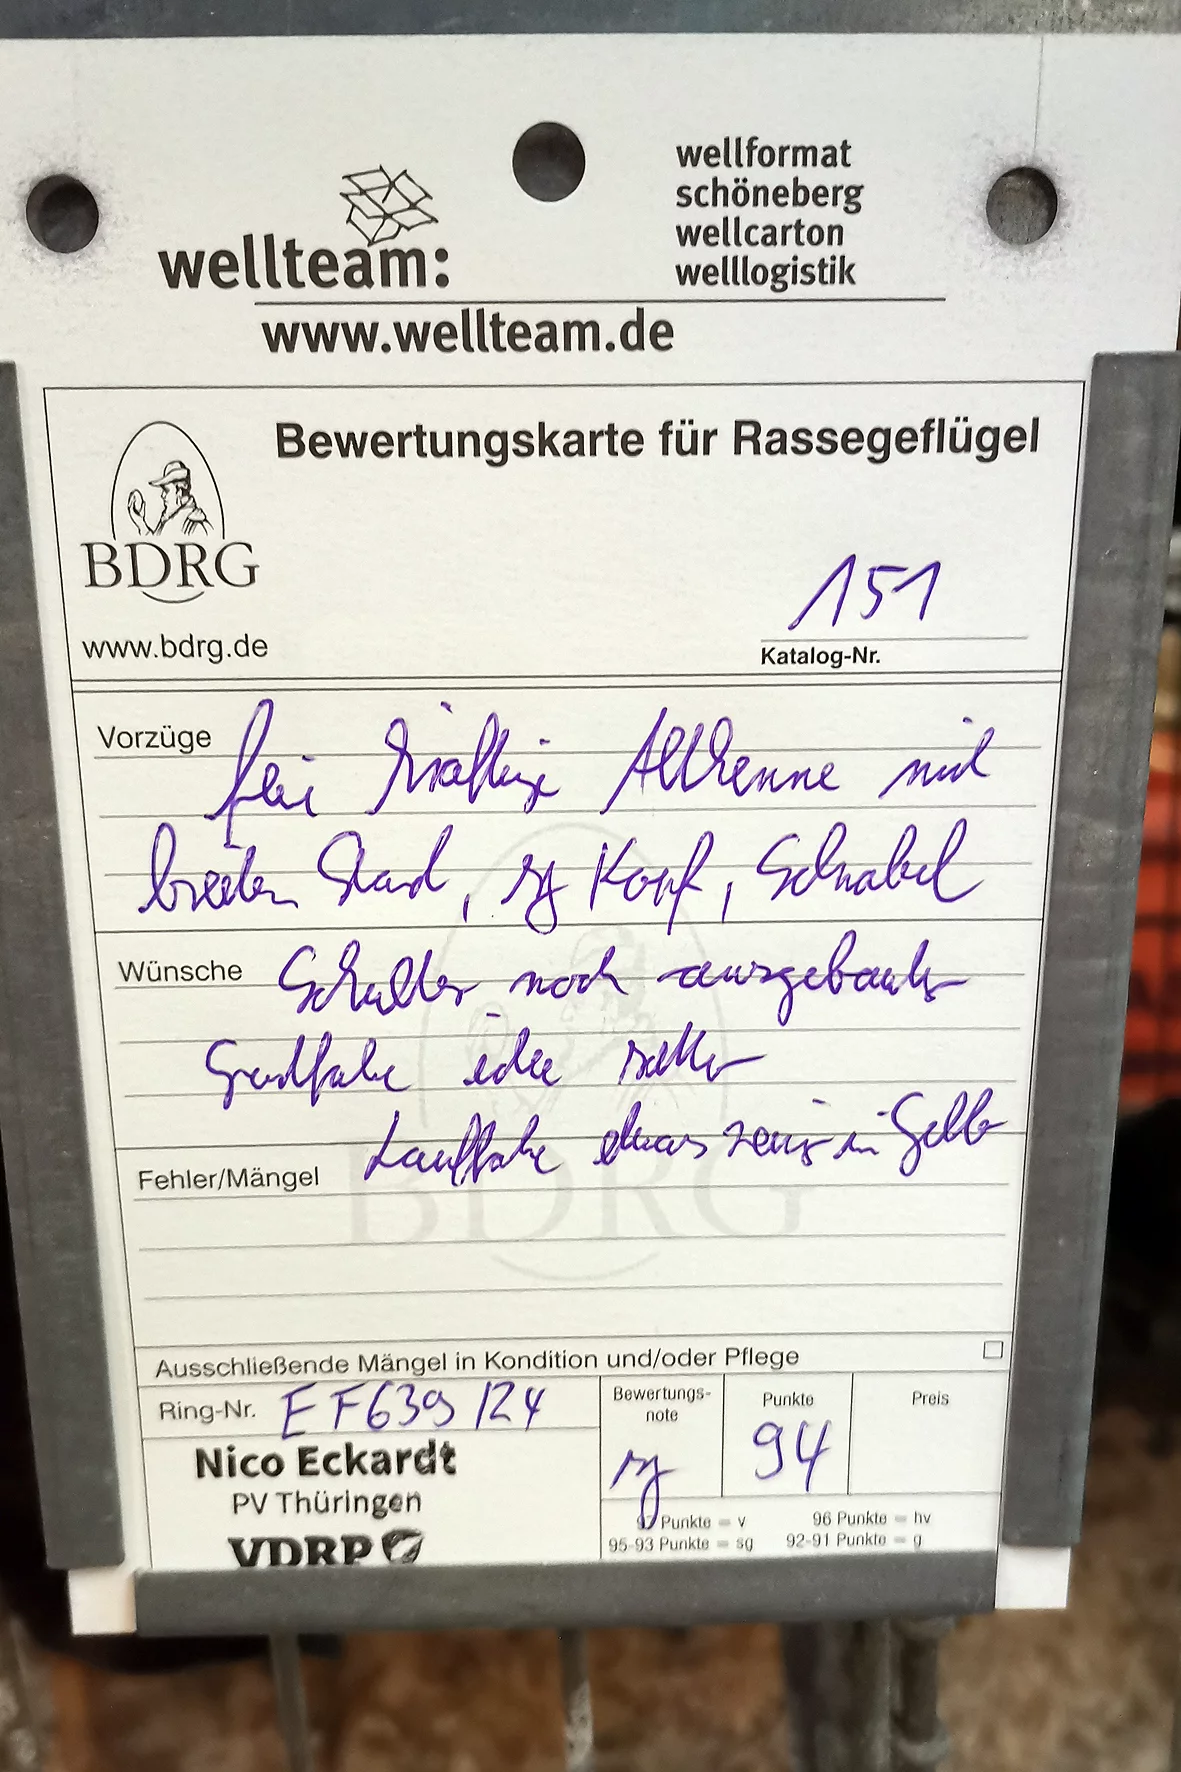 wellteam:
www.wellteam.de
wellformat
schöneberg
wellcarton
welllogistik
BDRG
www.bdrg.de
Bewertungskarte für Rassegeflügel
151
Katalog-Nr.
Vorzüge kräftige Althenne mit
breiten Stand, sg Kopf, Schnabel
Wünsche Schulter noch ausgebauter
Grundfarbe idee satter
Fehler/Mängel Lauffarbe etwas in Gelb
BDRG
Ausschließende Mängel in Kondition und/oder Pflege
Ring-Nr. EF639/24
Nico Eckardt
PV Thüringen
VDRP
Bewertungs-
note
sg
Punkte
94
Preis
97 Punkte = v 96 Punkte = hv
95-93 Punkte = sg 92-91 Punkte = g